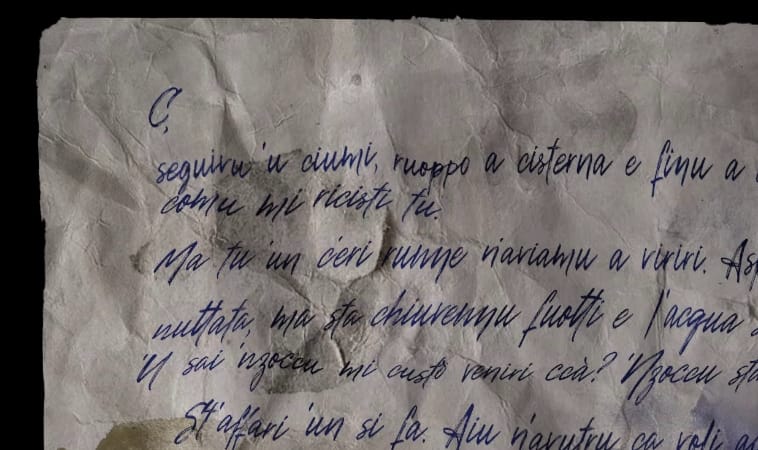 C,
seguivu 'u ciumi, ruoppo a cisterna e finu a
comu mi ricisti tu.
Ma tu 'un c'eri runne n'aviamu a viriri.
nuttata, ma sta chiuvennu fuotti e l'acqua
'U sai 'nzoccu mi custò veniri ccà? 'Nzoccu
St'affari 'un si fa. Aiu n'avutru ca voli